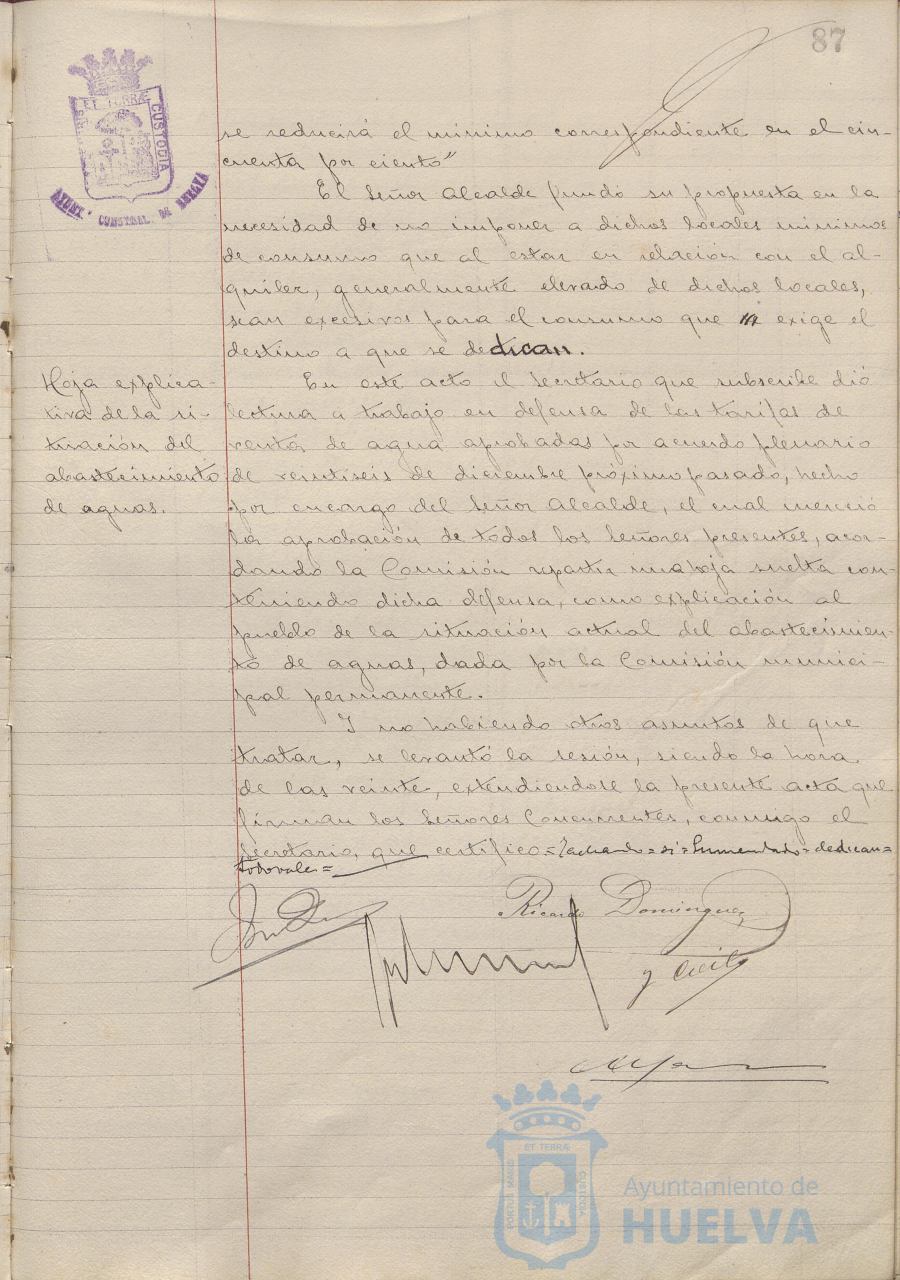 87
ET TERRÆ
CUSTODIA
AYUNT. CONSTNAL. DE HUELVA
se reducirá el mínimo correspondiente en el cin-
cuenta por ciento"
El Señor Alcalde fundó su propuesta en la
necesidad de no imponer a dichos locales mínimos
de consumo que al estar en relación con el al-
quiler, generalmente elevado de dichos locales,
sean excesivos para el consumo que exige el
destino a que se dedican.
Hoja explica-
tiva de la si-
tuación del
abastecimiento
de aguas.
En este acto el Secretario que subscribe dió
lectura a trabajo en defensa de las tarifas de
venta de agua aprobadas por acuerdo plenario
de veintiseis de diciembre próximo pasado, hecho
por encargo del Señor Alcalde, el cual mereció
la aprobación de todos los Señores presentes, acor-
dando la Comisión repartir una hoja suelta con-
teniendo dicha defensa, como explicación al
pueblo de la situación actual del abastecimien-
to de aguas, dada por la Comisión munici-
pal permanente.
Y no habiendo otros asuntos de que
tratar, se levantó la sesión, siendo la hora
de las veinte, extendiendose la presente acta que
firman los Señores Concurrentes, conmigo el
Secretario, que certifico = Tachado = si = Enmendado = dedican =
Todo vale =
Ricardo Domínguez
y Cecilio
ET TERRÆ
PORTUS MARIS
CUSTODIA
Ayuntamiento de
HUELVA